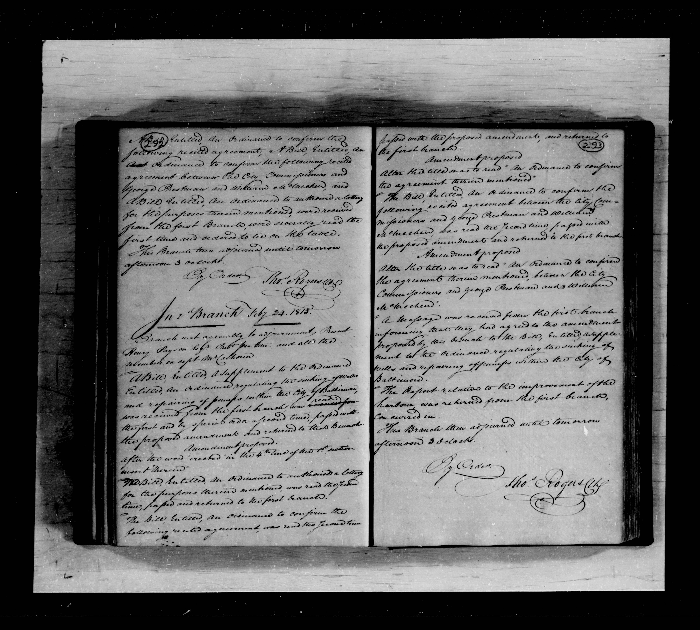 294
A Bill Entitled An Ordinance to confirm the
following recited agreement, A Bill Entitled An
Ordinance to confirm the following recited
agreement between the City Commissioners and
George Prestman and
A Bill Entitled An Ordinance to authorize a lottery
for the purposes therein mentioned were received
from the first Branch, were severally read the
first time and ordered to lie on the table.
This Branch then adjourned until tomorrow
afternoon 3 oClock
By Order
Thos. Rogers Clk
In 2d Branch Feby 24. 1813
Branch met according to adjournment, Present
Henry Payson Esqr. Prest. pro tem. and all the
members except Mr.
A Bill Entitled A Supplement to the Ordinance
Entitled, An Ordinance regulating the sinking of wells
and repairing of pumps within the City of Baltimore,
was received from the first branch was read
the first and by special order a second time, passed with
the proposed amendment and returned to that Branch
Amendment proposed.
after the word in the 4th line of the 1st
The Bill Entitled, An Ordinance to authorize a lottery
for the purposes therein mentioned was read the second
time, passed and returned to the first branch.
The Bill Entitled, An Ordinance to confirm the
following recited agreement, was read the second time
295
passed with the proposed amendment, and returned to
the first branch
Amendment proposed
Alter the title so as to read "An Ordinance to confirm
the agreement therein mentioned"
The Bill Entitled An Ordinance to confirm the
following recited agreement between the City Com-
missioners and George Prestman and William
McMechen was read the second time passed with
the proposed amendment and returned to the first branch
Amendment proposed
Alter the title so as to read "An Ordinance to confirm
the agreement therein mentioned between the City
Commissioners and George Prestman and William
McMechen"
A Message was received from the first branch
informing that they had agreed to the amendment
proposed by this branch to the Bill, Entitled A Supple-
ment to the Ordinance regulating the sinking of
wells and repairing of pumps within the City of
Baltimore.
The Report relative to the improvement of the
harbour was returned from the first branch,
Concurred in
This Branch then adjourned until tomorrow
afternoon 3 oClock.
By Order
Thos. Rogers Clk